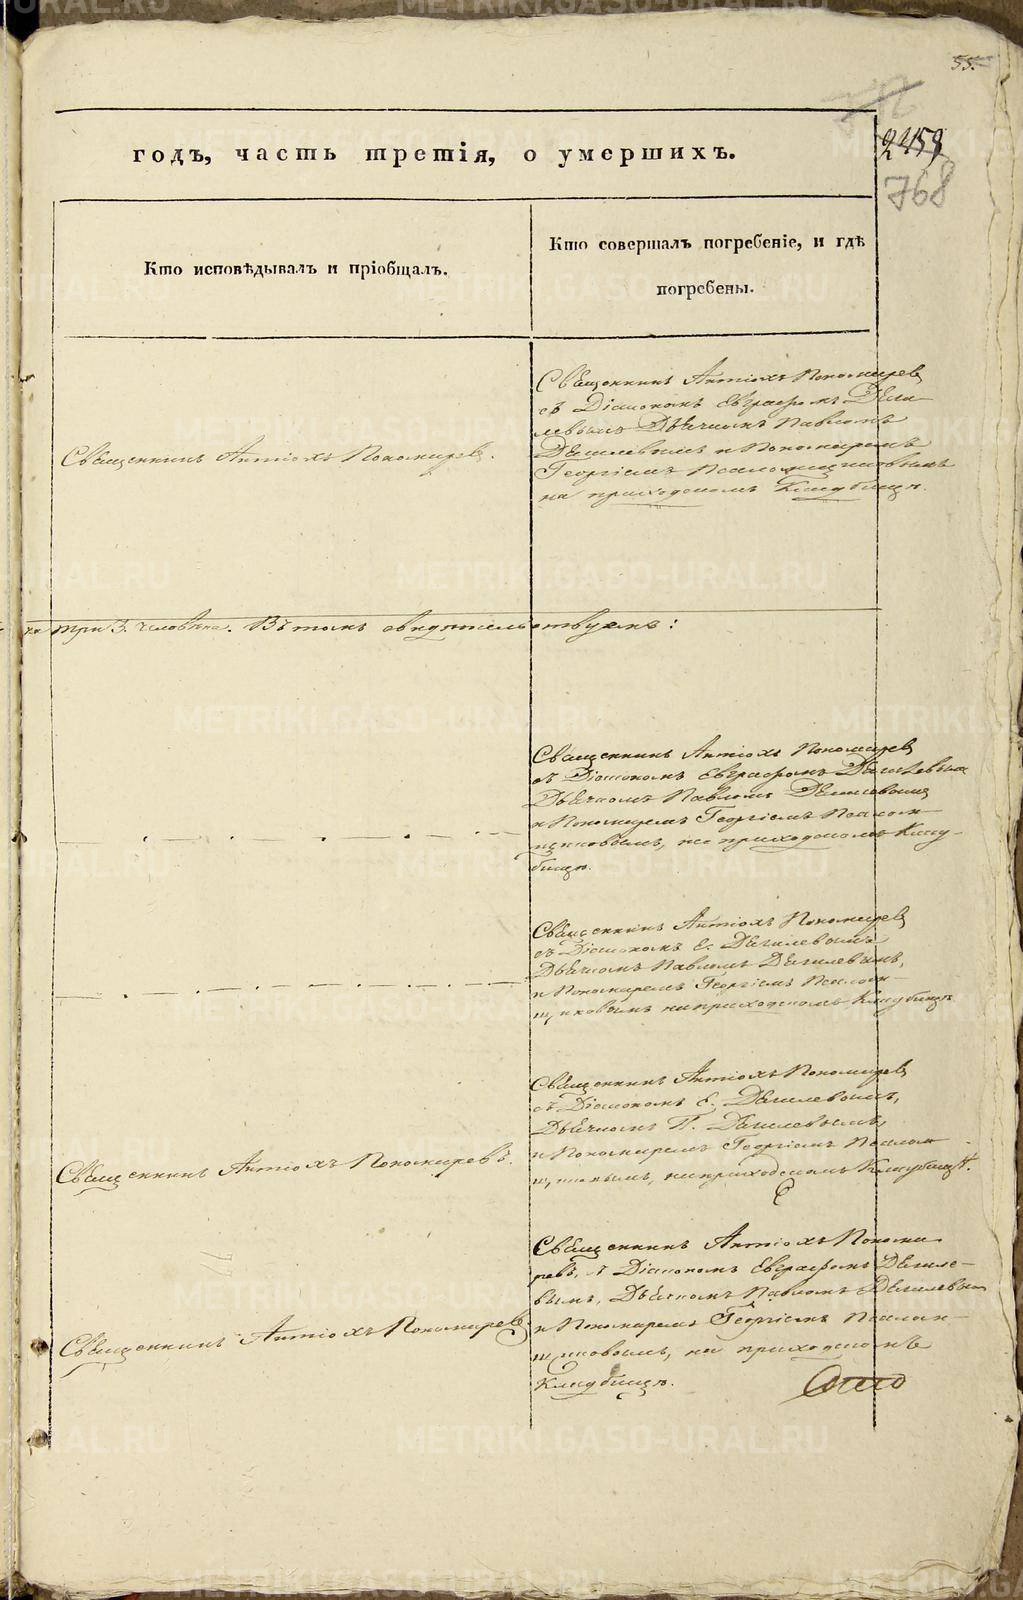 55.
2459
768
годъ, часть третія, о умершихъ.
Кто исповѣдывалъ и пріобщалъ.
Кто совершалъ погребеніе, и гдѣ
погребены.
Священникъ Антіохъ Пономаревъ
съ Діакономъ Евграфомъ Дяги-
левымъ Дьячкомъ Павломъ
Дягилевымъ и Пономаремъ
Георгіемъ Псаломщиковымъ
на приходскомъ Кладбищѣ.
Священникъ Антіохъ Пономаревъ.
три 3. человѣка. Въ томъ свидѣтельствуемъ:
Священникъ Антіохъ Пономаревъ
съ Діакономъ Евграфомъ Дягилевымъ
Дьячкомъ Павломъ Дягилевымъ
и Пономаремъ Георгіемъ Псалом-
щиковымъ, на приходскомъ Клад-
бищѣ.
Священникъ Антіохъ Пономаревъ
съ Діакономъ Е. Дягилевымъ
Дьячкомъ Павломъ Дягилевымъ,
и Пономаремъ Георгіемъ Псалом-
щиковымъ на приходскомъ Кладбищѣ
Священникъ Антіохъ Пономаревъ
съ Діакономъ Е. Дягилевымъ,
Дьячкомъ П. Дягилевымъ,
и Пономаремъ Георгіемъ Псалом-
щиковымъ, на приходскомъ Кладбищѣ.
Священникъ Антіохъ Пономаревъ.
Священникъ Антіохъ Понома-
ревъ, съ Діакономъ Евграфомъ Дягиле-
вымъ, Дьячкомъ Павломъ Дягилевымъ
и Пономаремъ Георгіемъ Псалом-
щиковымъ, на приходскомъ
Кладбищѣ.
Священникъ Антіохъ Пономаревъ.
METRIKI.GASO-URAL.RU